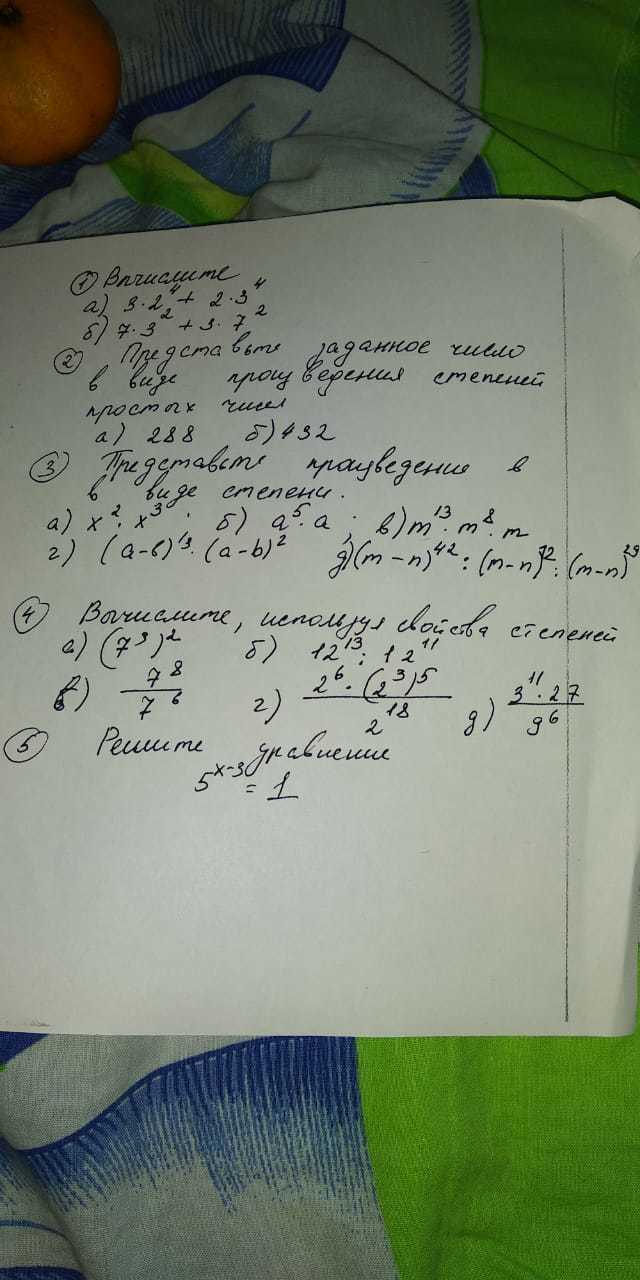 ① Вычислите
а) 3·2⁴ + 2·3⁴
б) 7·3² + 3·7²
② Представьте заданное число
в виде произведения степеней
простых чисел
а) 288 б) 432
③ Представьте произведение в
в виде степени.
а) x²·x³ ; б) a⁵·a ; в) m¹³·m⁸·m
г) (a-b)¹³·(a-b)² д) (m-n)⁴² : (m-n)¹² : (m-n)²⁹
④ Вычислите, используя свойства степеней
а) (7³)² б) 12¹³ : 12¹¹
в) 7⁸/7⁶ г) 2⁶·(2³)⁵/2¹⁸ д) 3¹¹·27/9⁶
⑤ Решите уравнение
5ˣ⁻³ = 1